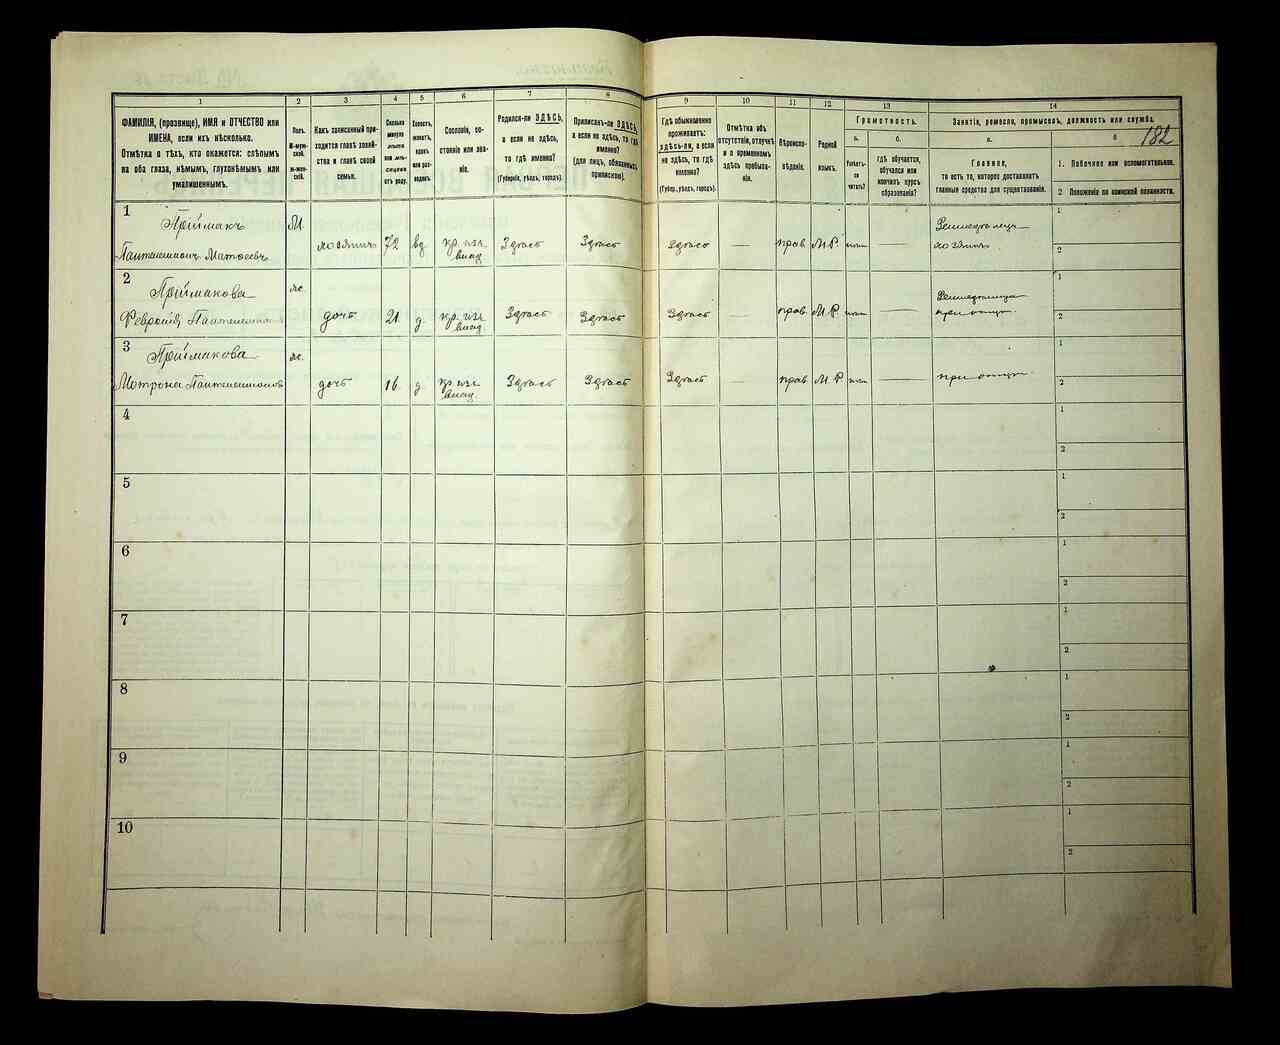 1 2 3 4 5 6 7 8 9 10 11 12 13 14
ФАМИЛІЯ, (прозвище), ИМЯ и ОТЧЕСТВО или
ИМЕНА, если ихъ нѣсколько.
Отмѣтка о тѣхъ, кто окажется: слѣпымъ
на оба глаза, нѣмымъ, глухонѣмымъ или
умалишеннымъ.
Полъ.
М-муж-
ской.
ж-жен-
скій.
Какъ записанный при-
ходится главѣ хозяй-
ства и главѣ своей
семьи.
Сколько
минуло
лѣтъ
или мѣ-
сяцевъ
отъ роду.
Холостъ,
женатъ,
вдовъ
или раз-
веденъ.
Сословіе, со-
стояніе или зва-
ніе.
Родился-ли ЗДѢСЬ,
а если не здѣсь,
то гдѣ именно?
(Губернія, уѣздъ, городъ).
Приписанъ-ли ЗДѢСЬ,
а если не здѣсь, то гдѣ
именно?
(для лицъ, обязанныхъ
припискою).
Гдѣ обыкновенно
проживаетъ:
здѣсь-ли, а если
не здѣсь, то гдѣ
именно?
(Губер., уѣздъ, городъ).
Отмѣтка объ
отсутствіи, отлучкѣ
и о временномъ
здѣсь пребыва-
ніи.
Вѣроиспо-
вѣданіе.
Родной
языкъ.
Грамотность.
а. б.
Умѣетъ-
ли
читать?
гдѣ обучается,
обучался или
кончилъ курсъ
образованія?
Занятія, ремесло, промыселъ, должность или служба.
182
а. б
Главное,
то есть то, которое доставляетъ
главныя средства для существованія.
1. Побочное или вспомогательное.
2 Положеніе по воинской повинности.
1 Приймакъ М.
Пантелеимонъ Матвеевъ хозяинъ 72 вд. кр. изъ влад. Здѣсь Здѣсь Здѣсь — прав М.Р. — Земледѣлецъ хозяинъ
1
2
2 Приймакова ж.
Февронія Пантелеимонова дочь 21 д. кр. изъ влад. Здѣсь Здѣсь Здѣсь — прав М.Р. — при отцѣ
1
2
3 Приймакова ж.
Мотрона Пантелеимонова дочь 16 д. кр изъ влад. Здѣсь Здѣсь Здѣсь — прав М.Р — при отцѣ
1
2
4
1
2
5
1
2
6
1
2
7
1
2
8
1
2
9
1
2
10
1
2